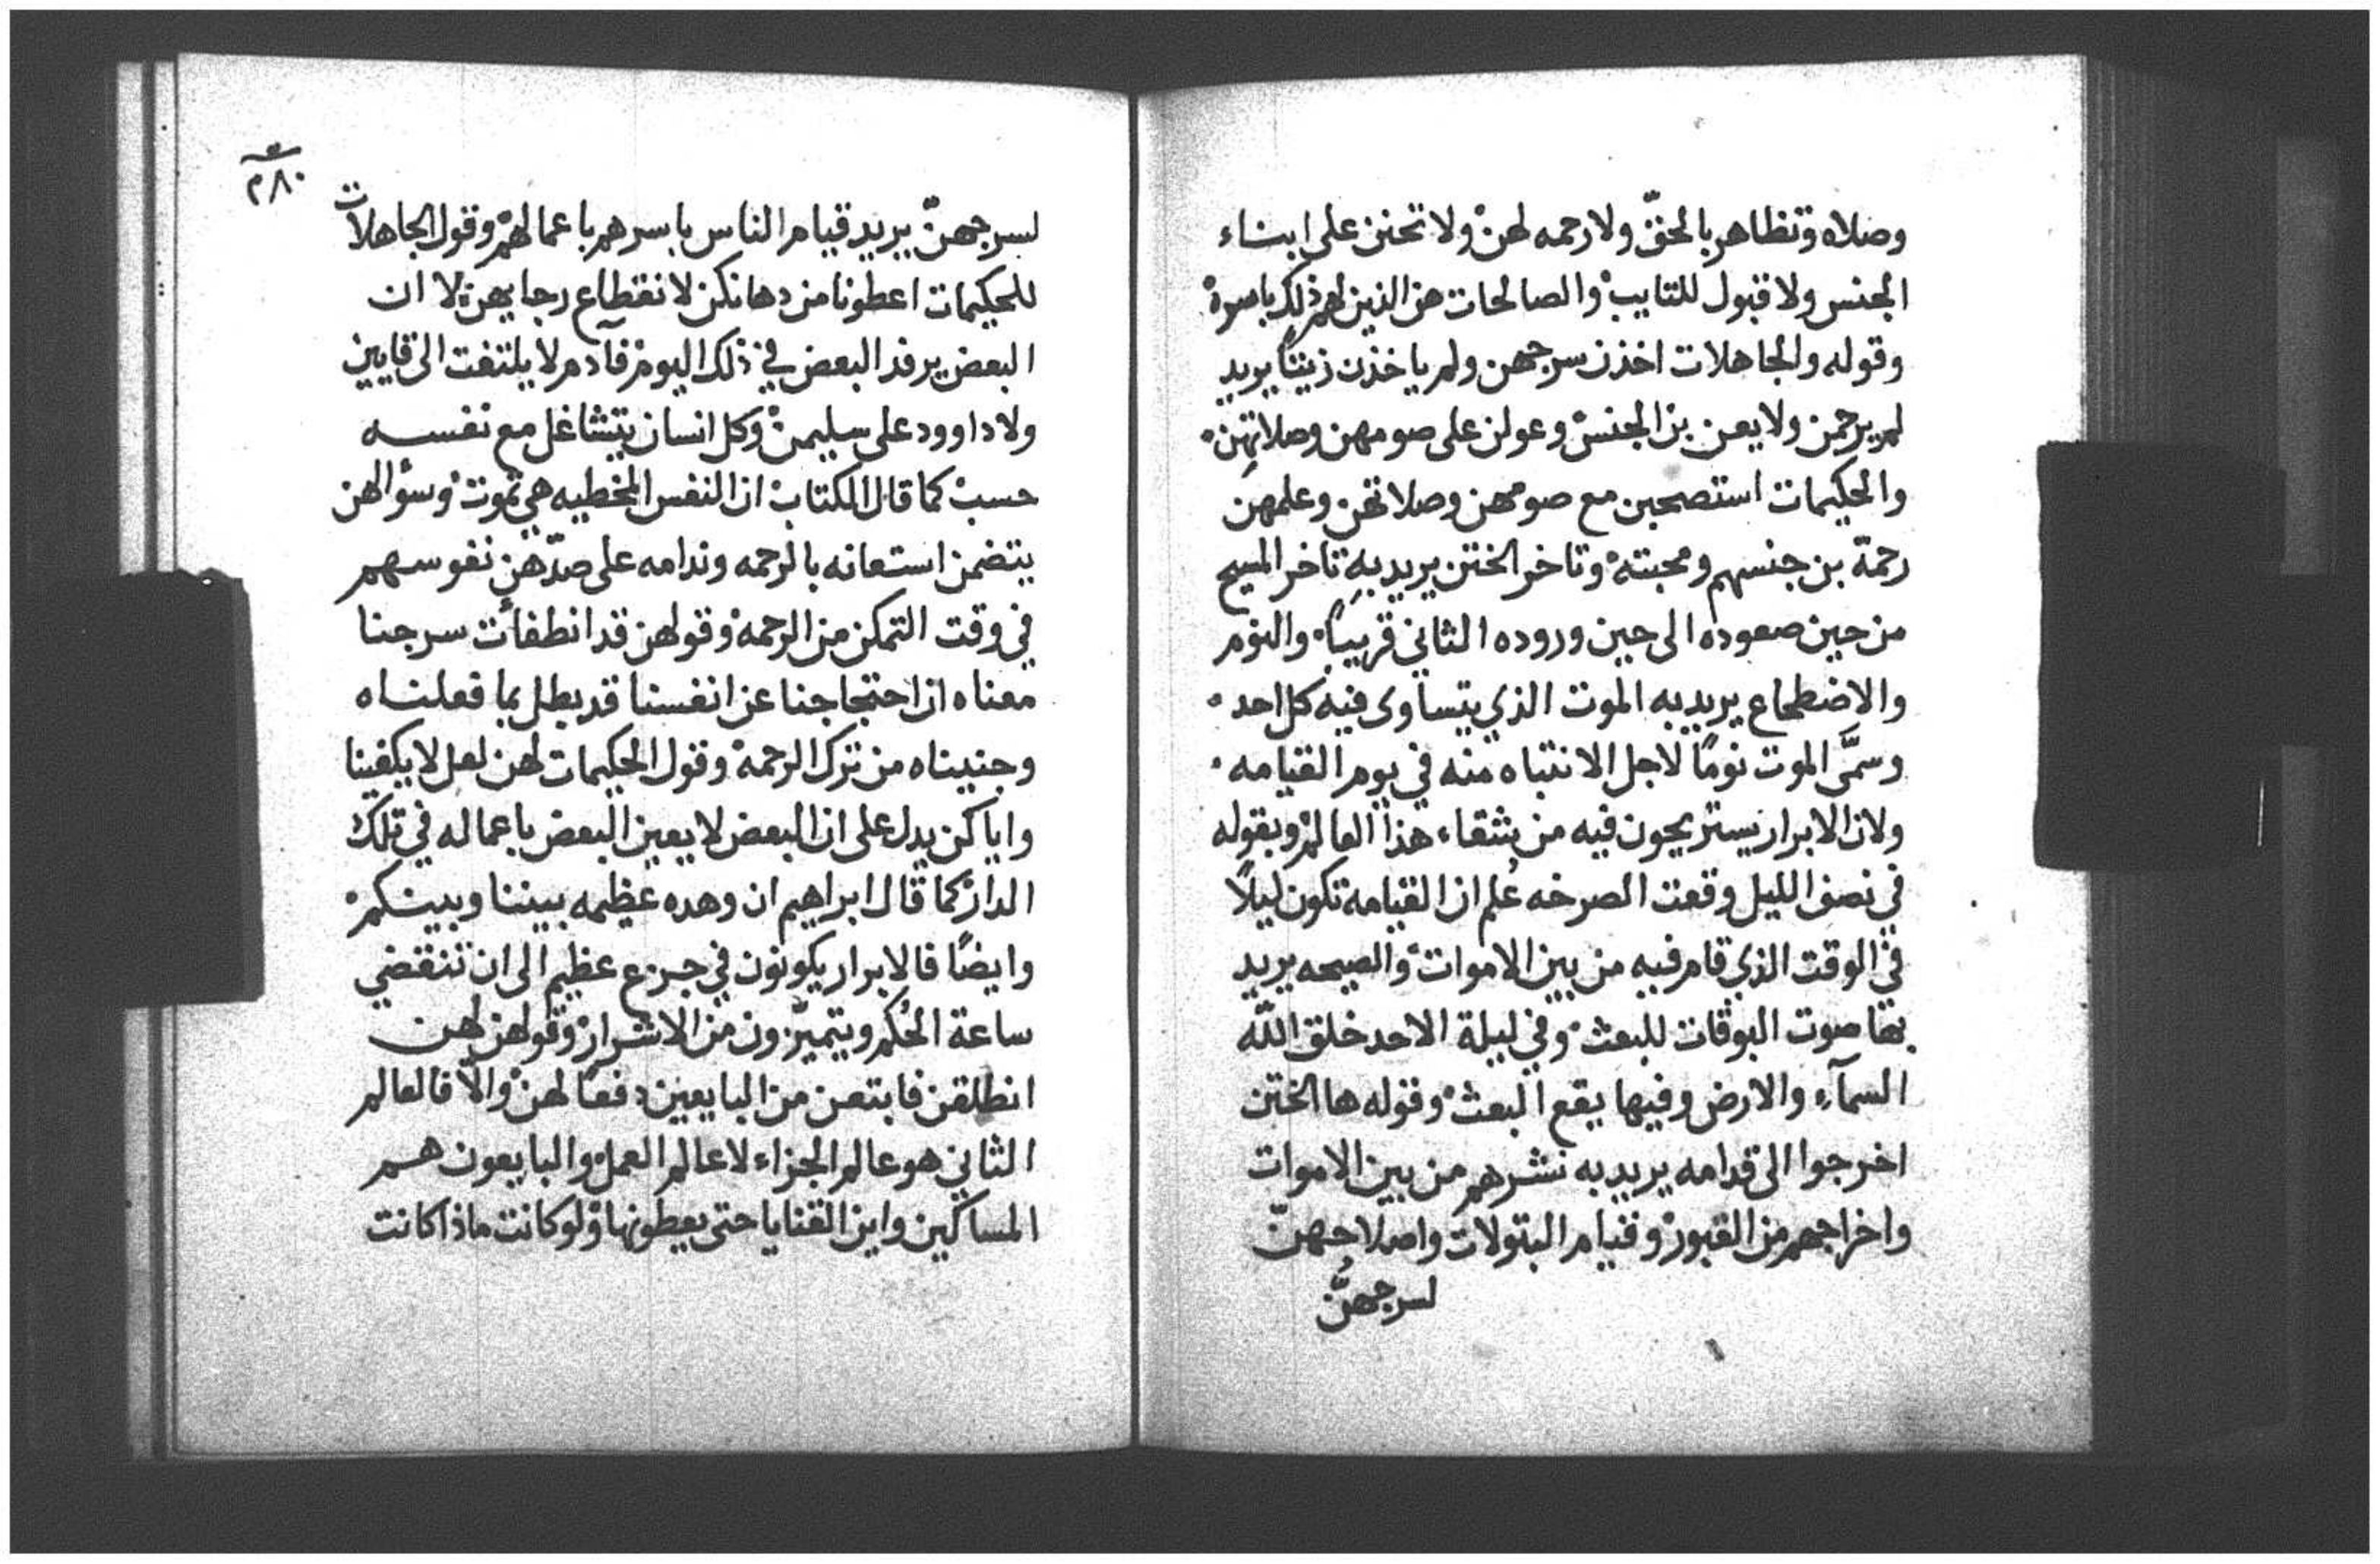 وصلاه وتظاهر بالحقّ ولا رحمه لهن ولا تحنن على ابناء
الجنس ولا قبول للتايب والصالحات هن الذين لهم ذلك باسره
وقوله والجاهلات اخذن سرجهن ولم ياخذن زيتًا يريد
لم يرحمن ولا يعن بن الجنس وعولن على صومهن وصلاتهن
والحكيمات استصحبن مع صومهن وصلاتهن وعلمهن
رحمة بن جنسهم ومحبته وتاخر الختن يريد به تاخر المسيح
من حين صعوده الى حين وروده الثاني قريبًا والنوم
والاضطجاع يريد به الموت الذي يتساوى فيه كل احد
وسمَّى الموت نومًا لاجل الانتباه منه في يوم القيامه
ولان الابرار يستريحون فيه من شقاء هذا العالم وبقوله
في نصف الليل وقعت الصرخه عُلم ان القيامة تكون ليلاً
في الوقت الذي قام فيه من بين الاموات والصيحه يريد
بها صوت البوقات للبعث وفي ليلة الاحد خلق اللّه
السمآء والارض وفيها يقع البعث وقوله ها الختن
اخرجوا الى قدامه يريد به نشرهم من بين الاموات
واخراجهم من القبور وقيام البتولات واصلاحهنّ
لسرجهنَّ
٢٨٠
لسرجهنّ يريد قيام الناس باسرهم باعمالهم وقول الجاهلات
للحكيمات اعطونا من دهانكن لانقطاع رجايهن لا ان
البعض يرفد البعض في ذلك اليوم فآدم لا يلتفت الى قايين
ولا داوود على سليمن وكل انسان يتشاغل مع نفسه
حسب كما قال الكتاب ان النفس المخطيه هي تموت وسؤالهن
يتضمن استعانه بالرحمه وندامه على صدّهن نفوسهم
في وقت التمكن من الرحمه وقولهن قد انطفأت سرجنا
معناه ان احتجاجنا عن انفسنا قد بطل بما فعلناه
وجنيناه من ترك الرحمه وقول الحكيمات لهن لعل لا يكفينا
واياكن يدل على ان البعض لا يعين البعض باعماله في تلك
الدار كما قال ابراهيم ان وهده عظيمه بيننا وبينكم
وايضًا فالابرار يكونون في جزع عظيم الى ان تنقضي
ساعة الحُكم ويتميّزون من الاشرار وقولهن لهن
انطلقن فابتعن من البايعين دفعًا لهن والّا فالعالم
الثاني هو عالم الجزاء لا عالم العمل والبايعون هم
المساكين واين القنايا حتى يعطونها ولو كانت ماذا كانت